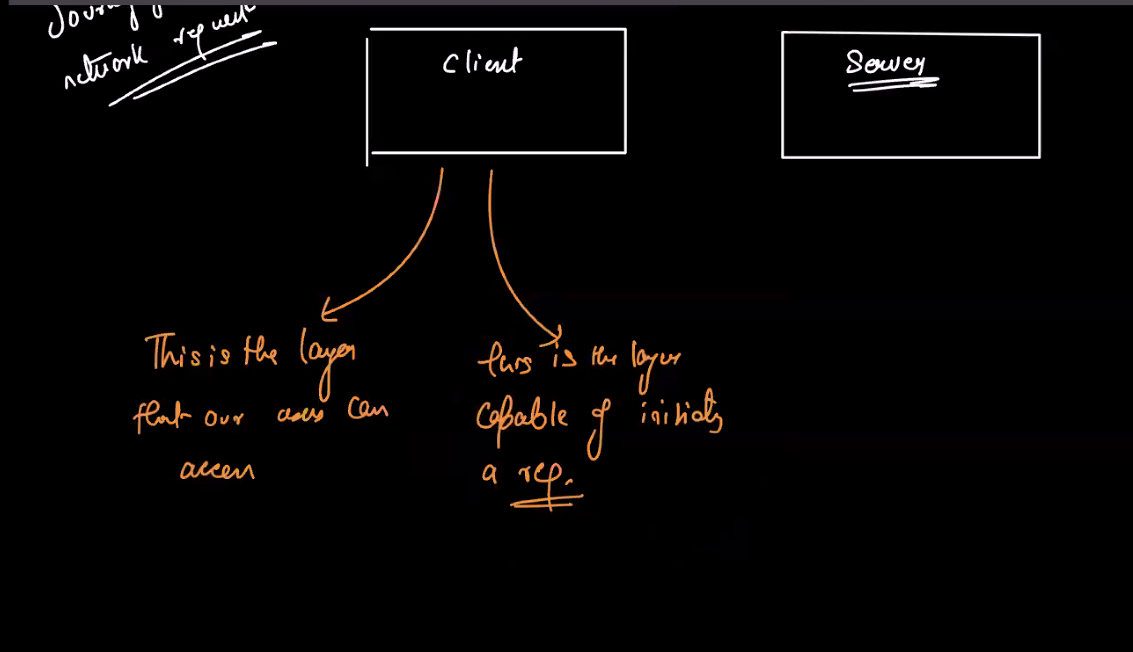 Journey of
network request
Client
Server
This is the layer
that our users can
access
this is the layer
capable of initiating
a req.